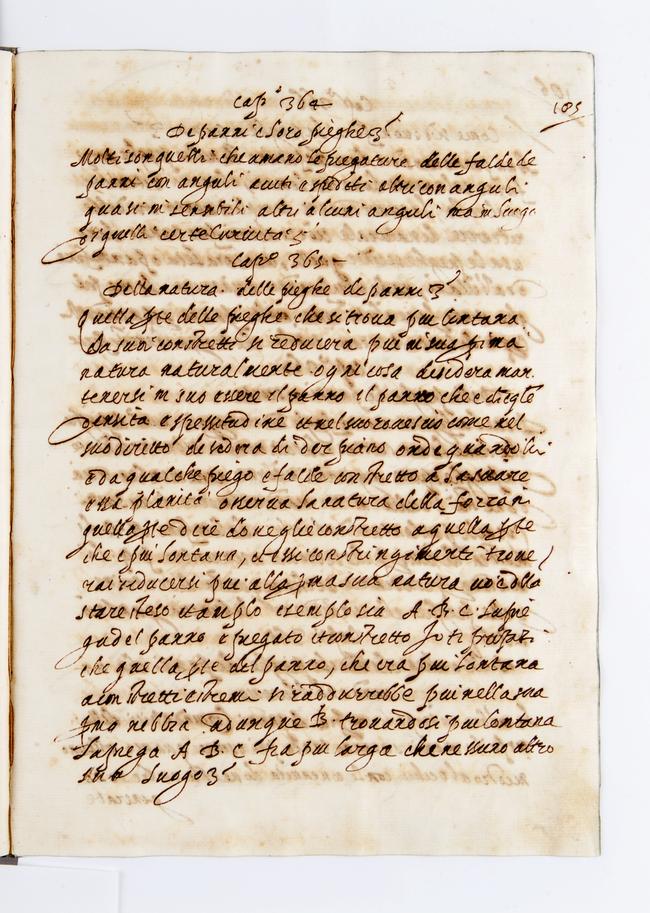 Cap.º 364
185
De panni e loro pieghe
Molti son quelli che amano le piegature delle falde de
panni con anguli acuti e spediti altri con anguli
quasi insensibili altri alcuni anguli ma in luogo
di quelli certe curvita
Cap.º 365
Della natura delle pieghe de panni
Quella pte delle pieghe che si trova piu lontana
Da suoi constretti si reducera piu in sua prima
natura naturalmente ogni cosa desidera man
tenersi in suo essere il panno il panno che e di egle
densita e spessitudine si nel suo rovescio come nel
suo diretto desidera di star piano onde quando lui
e da qualche piego e falde constretto a lasciare
essa planitia osserva la natura della forza in
quella pte di se dove gli e constretto a quella pte
che e piu lontana, da essi constringimenti trove
rai riducersi piu alla pma sua natura cioe dello
stare steso et amplo esemplo sia A B C la pie
ga del panno e piegato et constretto Io ti proposi
che quella pte del panno, che era piu lontana
a constretti estremi si raddurrebbe piu nella sua
pma adunque B. trovandosi piu lontana
la piega A B C fia piu larga che nessuno altro
suo luogo